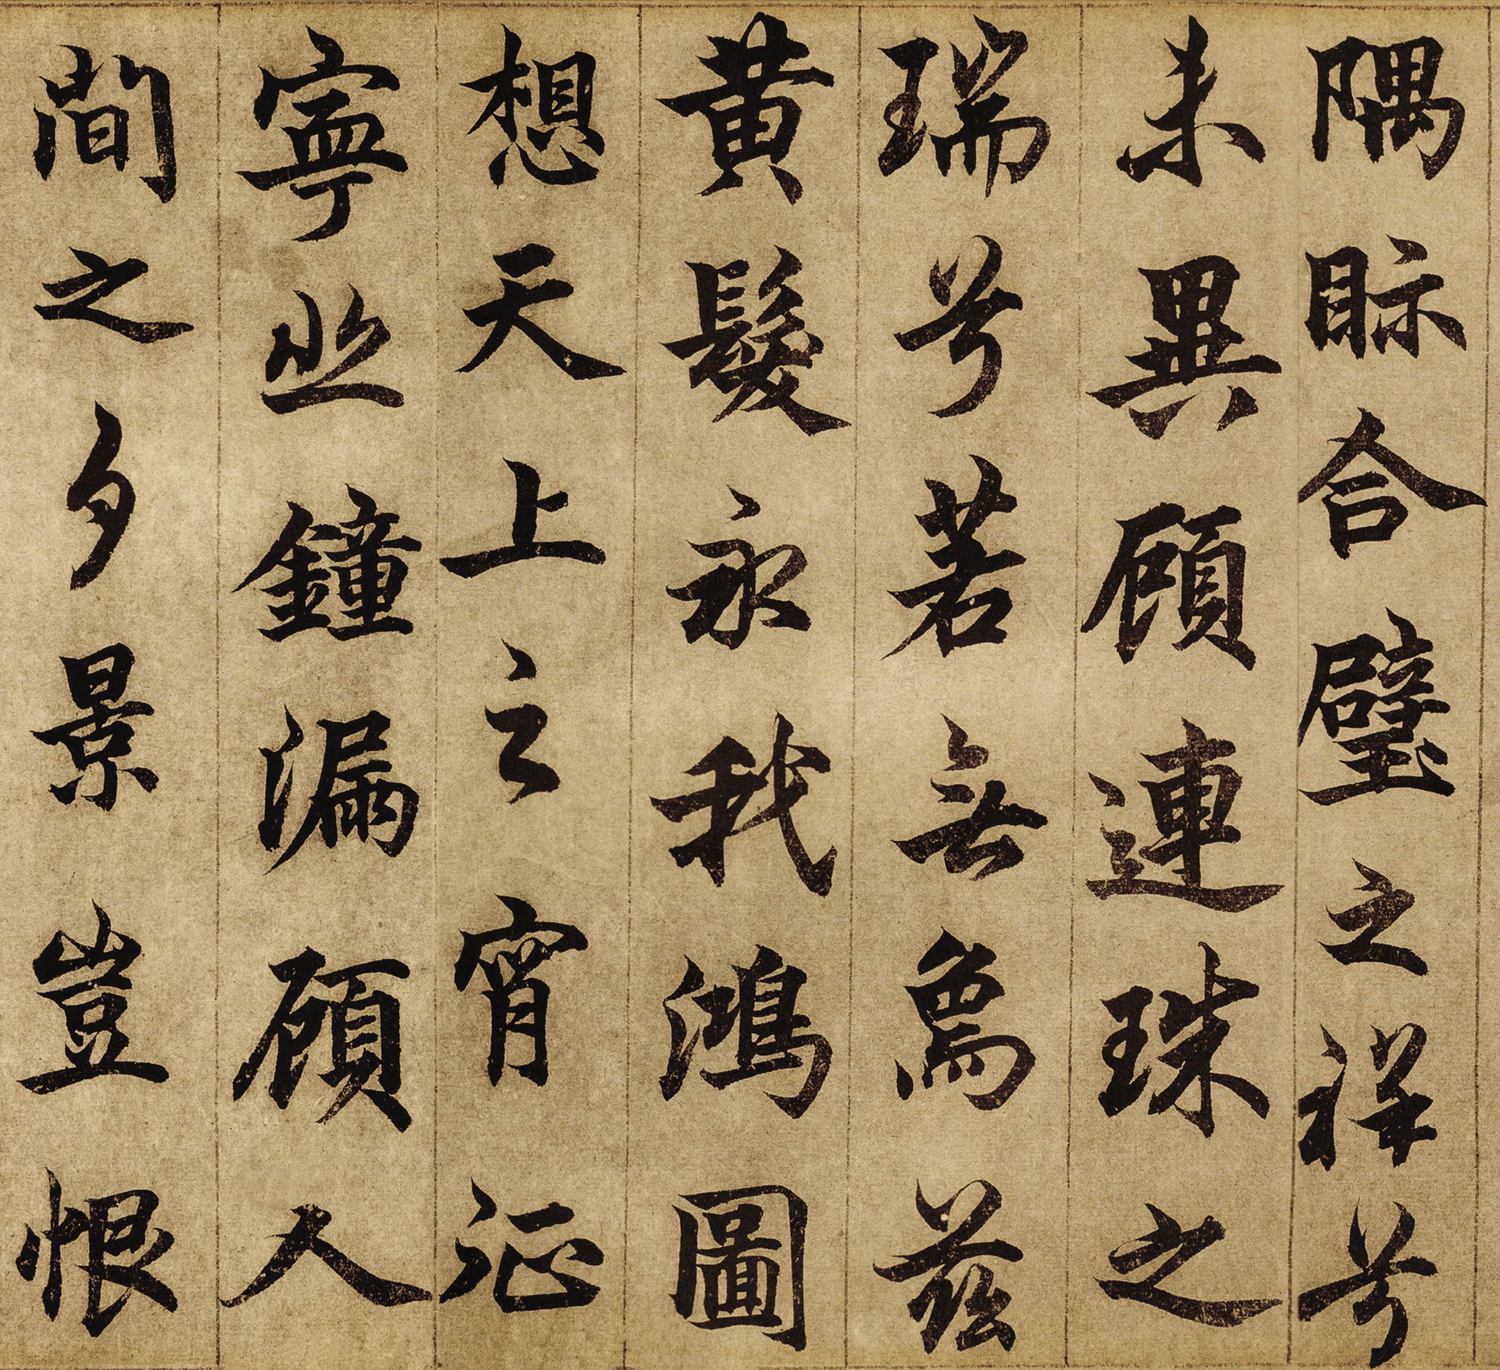 隅眎合璧之祥兮
未異顧連珠之
瑞兮若茲
黃髮永我鴻圖
想天上之宵征
寧鐘漏顧人
間之夕景豈恨